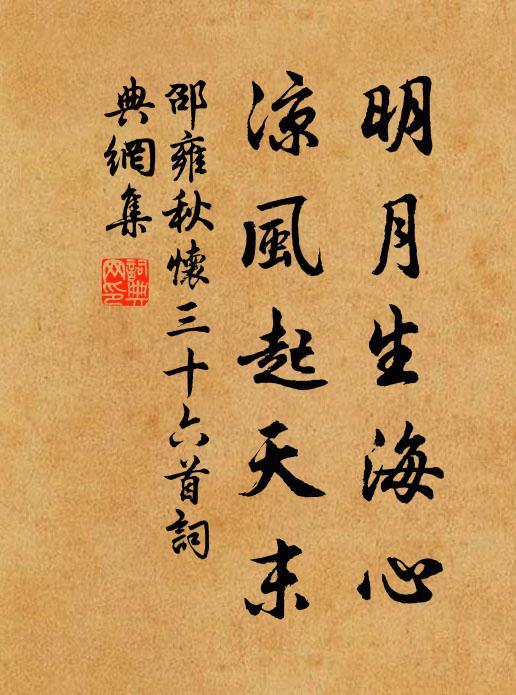 明月生海心
涼風起天末
邵雍秋懷三十六首詞
典網集
詞典
网印